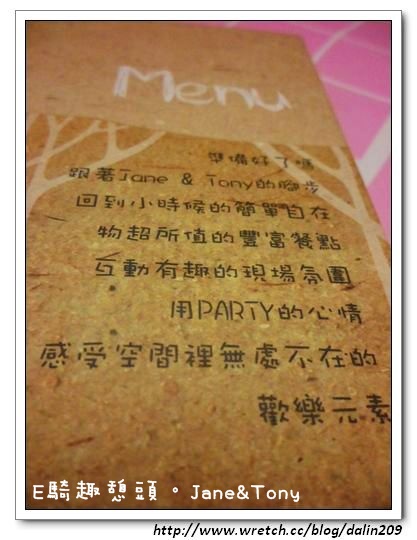 Menu
準備好了嗎
跟著Jane & Tony的腳步
回到小時候的簡單自在
物超所值的豐富餐點
互動有趣的現場氛圍
用PARTY的心情
感受空間裡無處不在的
歡樂元素
E騎趣憩頭。Jane&Tony
http://www.wretch.cc/blog/dalin209